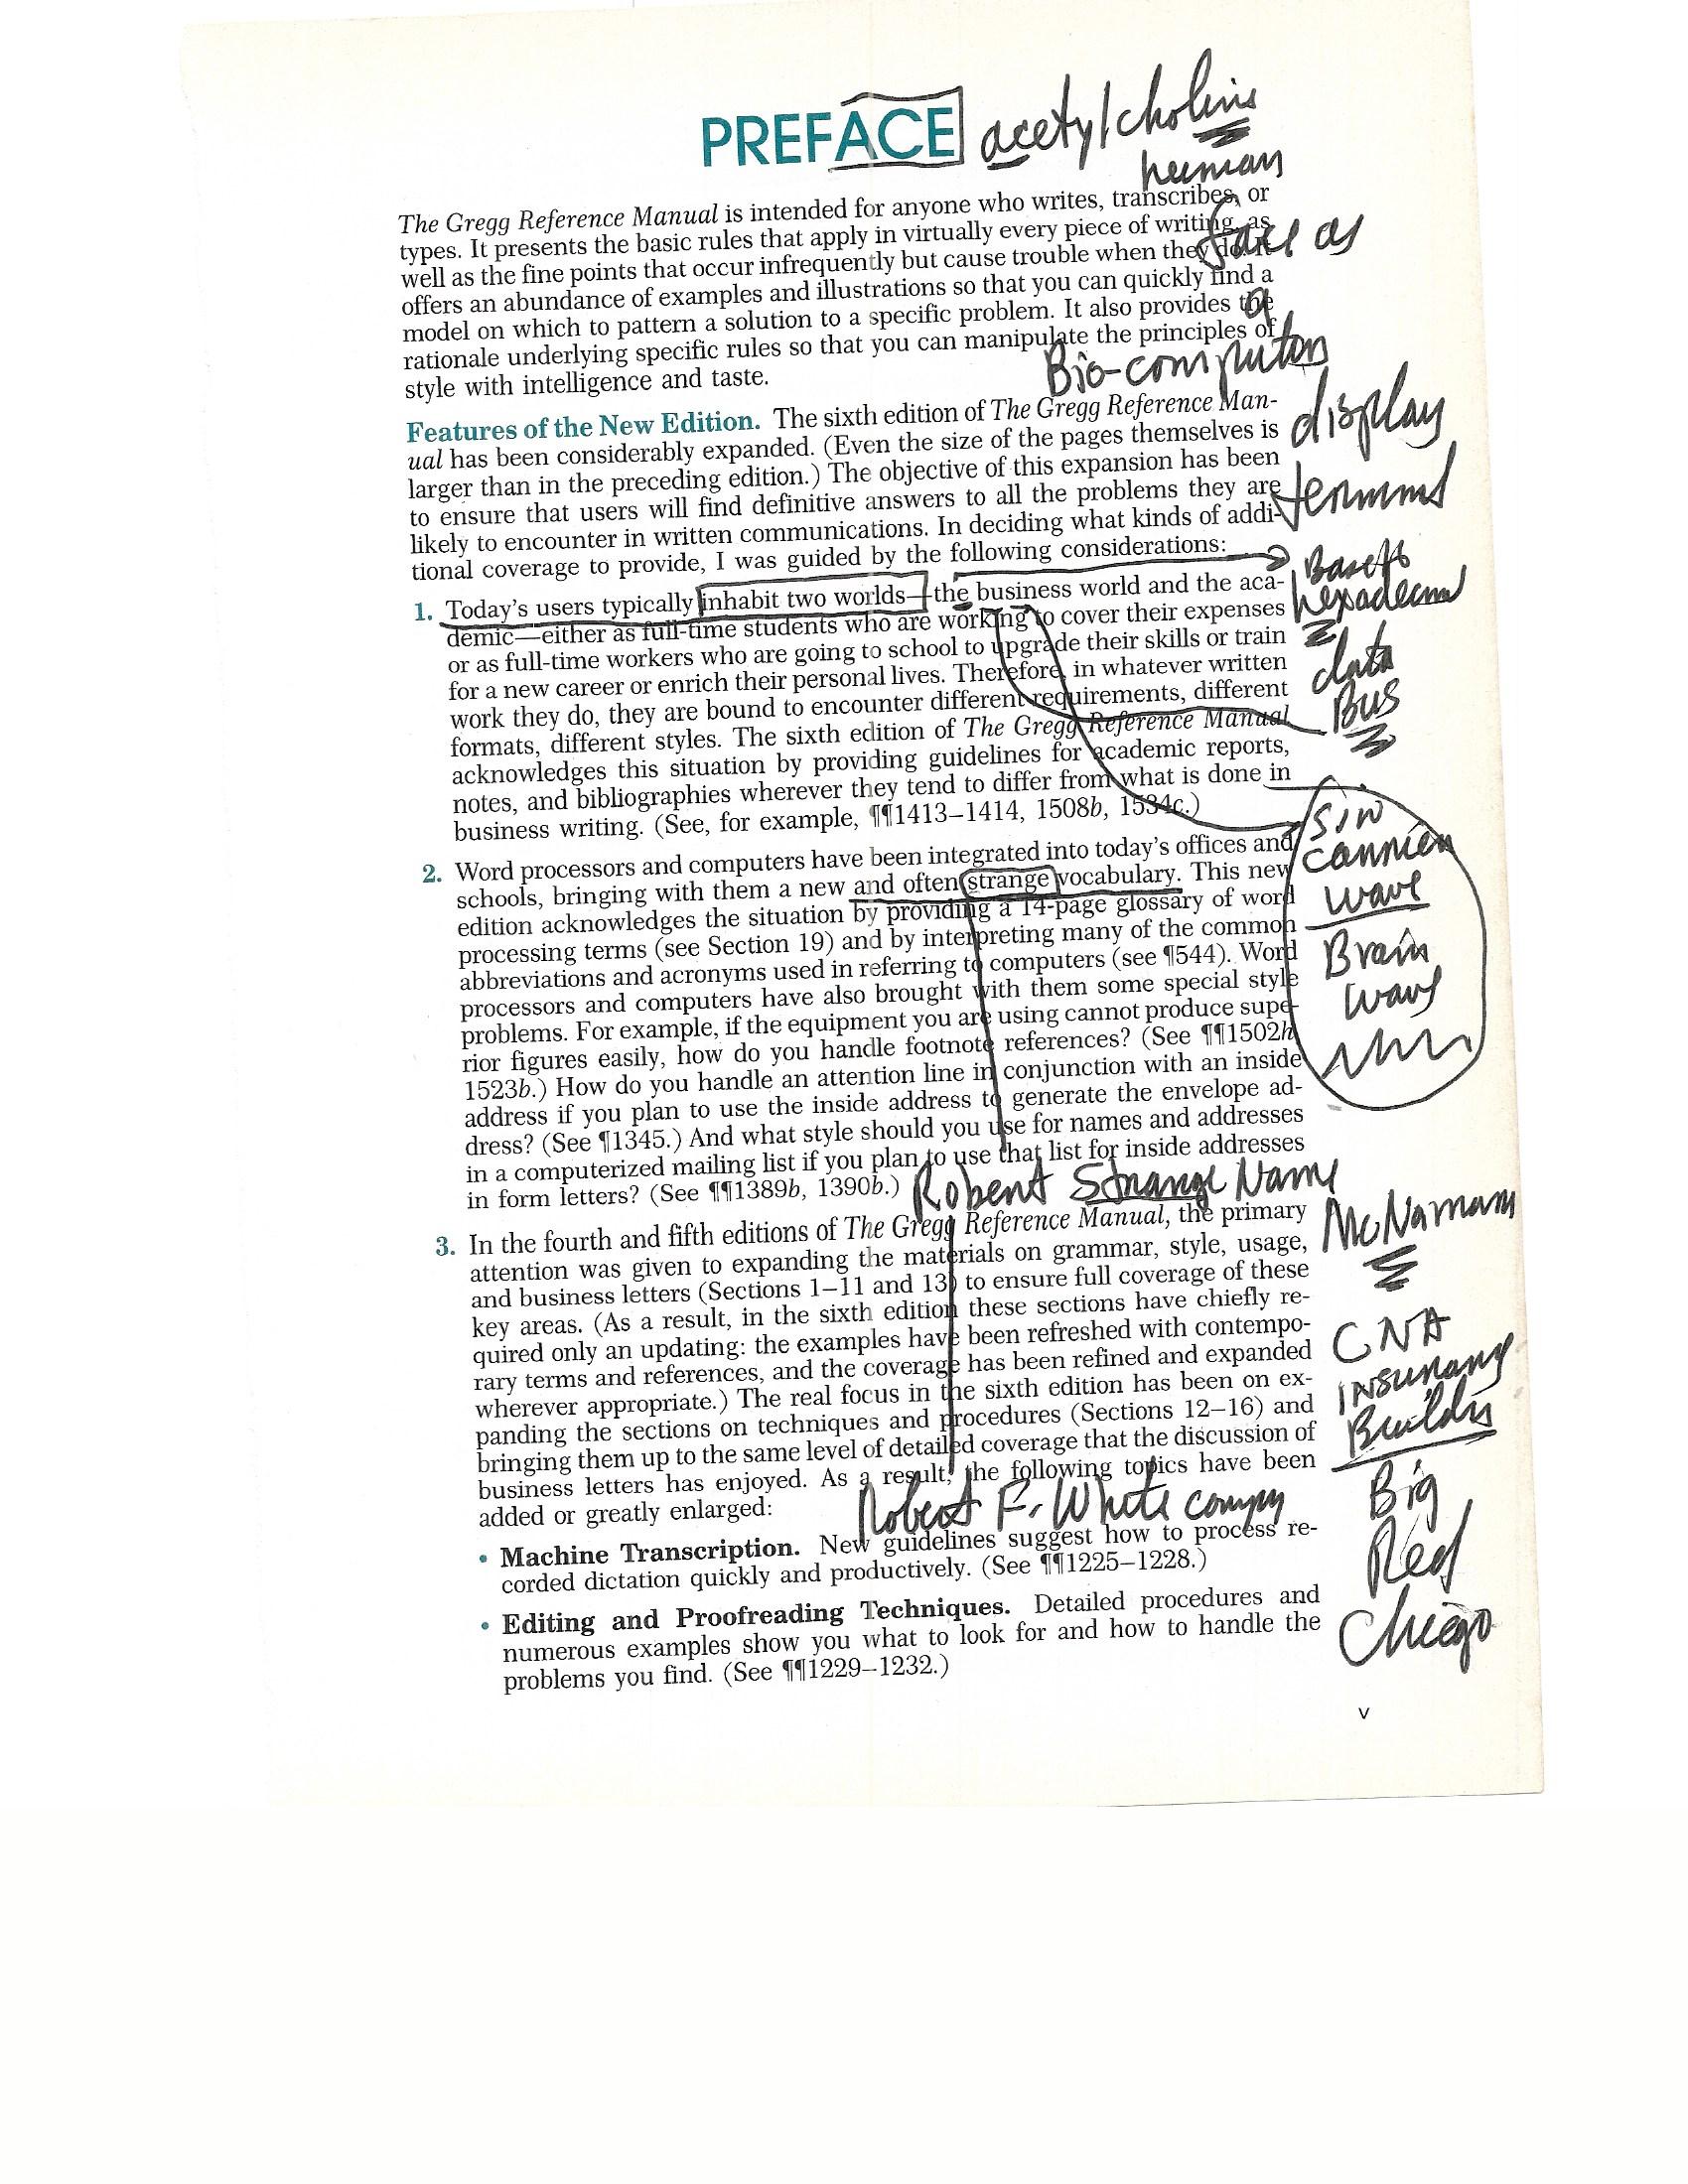 PREFACE acetylcholine
human
face as
a
Bio-computer
display
terminal
The Gregg Reference Manual is intended for anyone who writes, transcribes, or
types. It presents the basic rules that apply in virtually every piece of writing, as
well as the fine points that occur infrequently but cause trouble when they do. It
offers an abundance of examples and illustrations so that you can quickly find a
model on which to pattern a solution to a specific problem. It also provides the
rationale underlying specific rules so that you can manipulate the principles of
style with intelligence and taste.
Features of the New Edition. The sixth edition of The Gregg Reference Man-
ual has been considerably expanded. (Even the size of the pages themselves is
larger than in the preceding edition.) The objective of this expansion has been
to ensure that users will find definitive answers to all the problems they are
likely to encounter in written communications. In deciding what kinds of addi-
tional coverage to provide, I was guided by the following considerations:
1. Today's users typically inhabit two worlds—the business world and the aca-
demic—either as full-time students who are working to cover their expenses
or as full-time workers who are going to school to upgrade their skills or train
for a new career or enrich their personal lives. Therefore, in whatever written
work they do, they are bound to encounter different requirements, different
formats, different styles. The sixth edition of The Gregg Reference Manual
acknowledges this situation by providing guidelines for academic reports,
notes, and bibliographies wherever they tend to differ from what is done in
business writing. (See, for example, ¶¶1413–1414, 1508b, 1534c.)
hexadecimal
data
Bus
2. Word processors and computers have been integrated into today's offices and
schools, bringing with them a new and often strange vocabulary. This new
edition acknowledges the situation by providing a 14-page glossary of word
processing terms (see Section 19) and by interpreting many of the common
abbreviations and acronyms used in referring to computers (see ¶544). Word
processors and computers have also brought with them some special style
problems. For example, if the equipment you are using cannot produce supe-
rior figures easily, how do you handle footnote references? (See ¶¶1502h,
1523b.) How do you handle an attention line in conjunction with an inside
address if you plan to use the inside address to generate the envelope ad-
dress? (See ¶1345.) And what style should you use for names and addresses
in a computerized mailing list if you plan to use that list for inside addresses
in form letters? (See ¶¶1389b, 1390b.)
Sin
carrier
wave
Brain
wave
Robert Strange Name
McNamara
3. In the fourth and fifth editions of The Gregg Reference Manual, the primary
attention was given to expanding the materials on grammar, style, usage,
and business letters (Sections 1–11 and 13) to ensure full coverage of these
key areas. (As a result, in the sixth edition these sections have chiefly re-
quired only an updating: the examples have been refreshed with contempo-
rary terms and references, and the coverage has been refined and expanded
wherever appropriate.) The real focus in the sixth edition has been on ex-
panding the sections on techniques and procedures (Sections 12–16) and
bringing them up to the same level of detailed coverage that the discussion of
business letters has enjoyed. As a result, the following topics have been
added or greatly enlarged:
CNA
Insurance
Building
Big
Red
Chicago
Robert F. White company
• Machine Transcription. New guidelines suggest how to process re-
corded dictation quickly and productively. (See ¶¶1225–1228.)
• Editing and Proofreading Techniques. Detailed procedures and
numerous examples show you what to look for and how to handle the
problems you find. (See ¶¶1229–1232.)
v